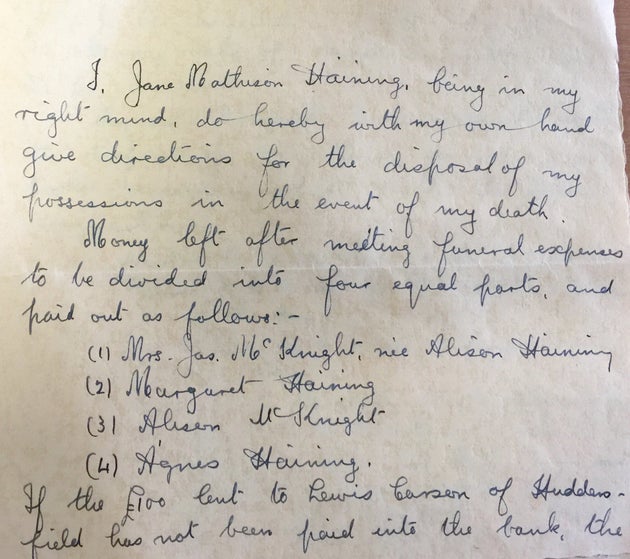 I, Jane Mathison Haining, being in my
right mind, do hereby with my own hand
give directions for the disposal of my
possessions in the event of my death.
Money left after meeting funeral expenses
to be divided into four equal parts, and
paid out as follows:-
(1) Mrs. Jas. McKnight, née Alison Haining
(2) Margaret Haining
(3) Alison McKnight
(4) Agnes Haining.
If the £100 lent to Lewis Carson of Hudders-
field has not been paid into the bank, the